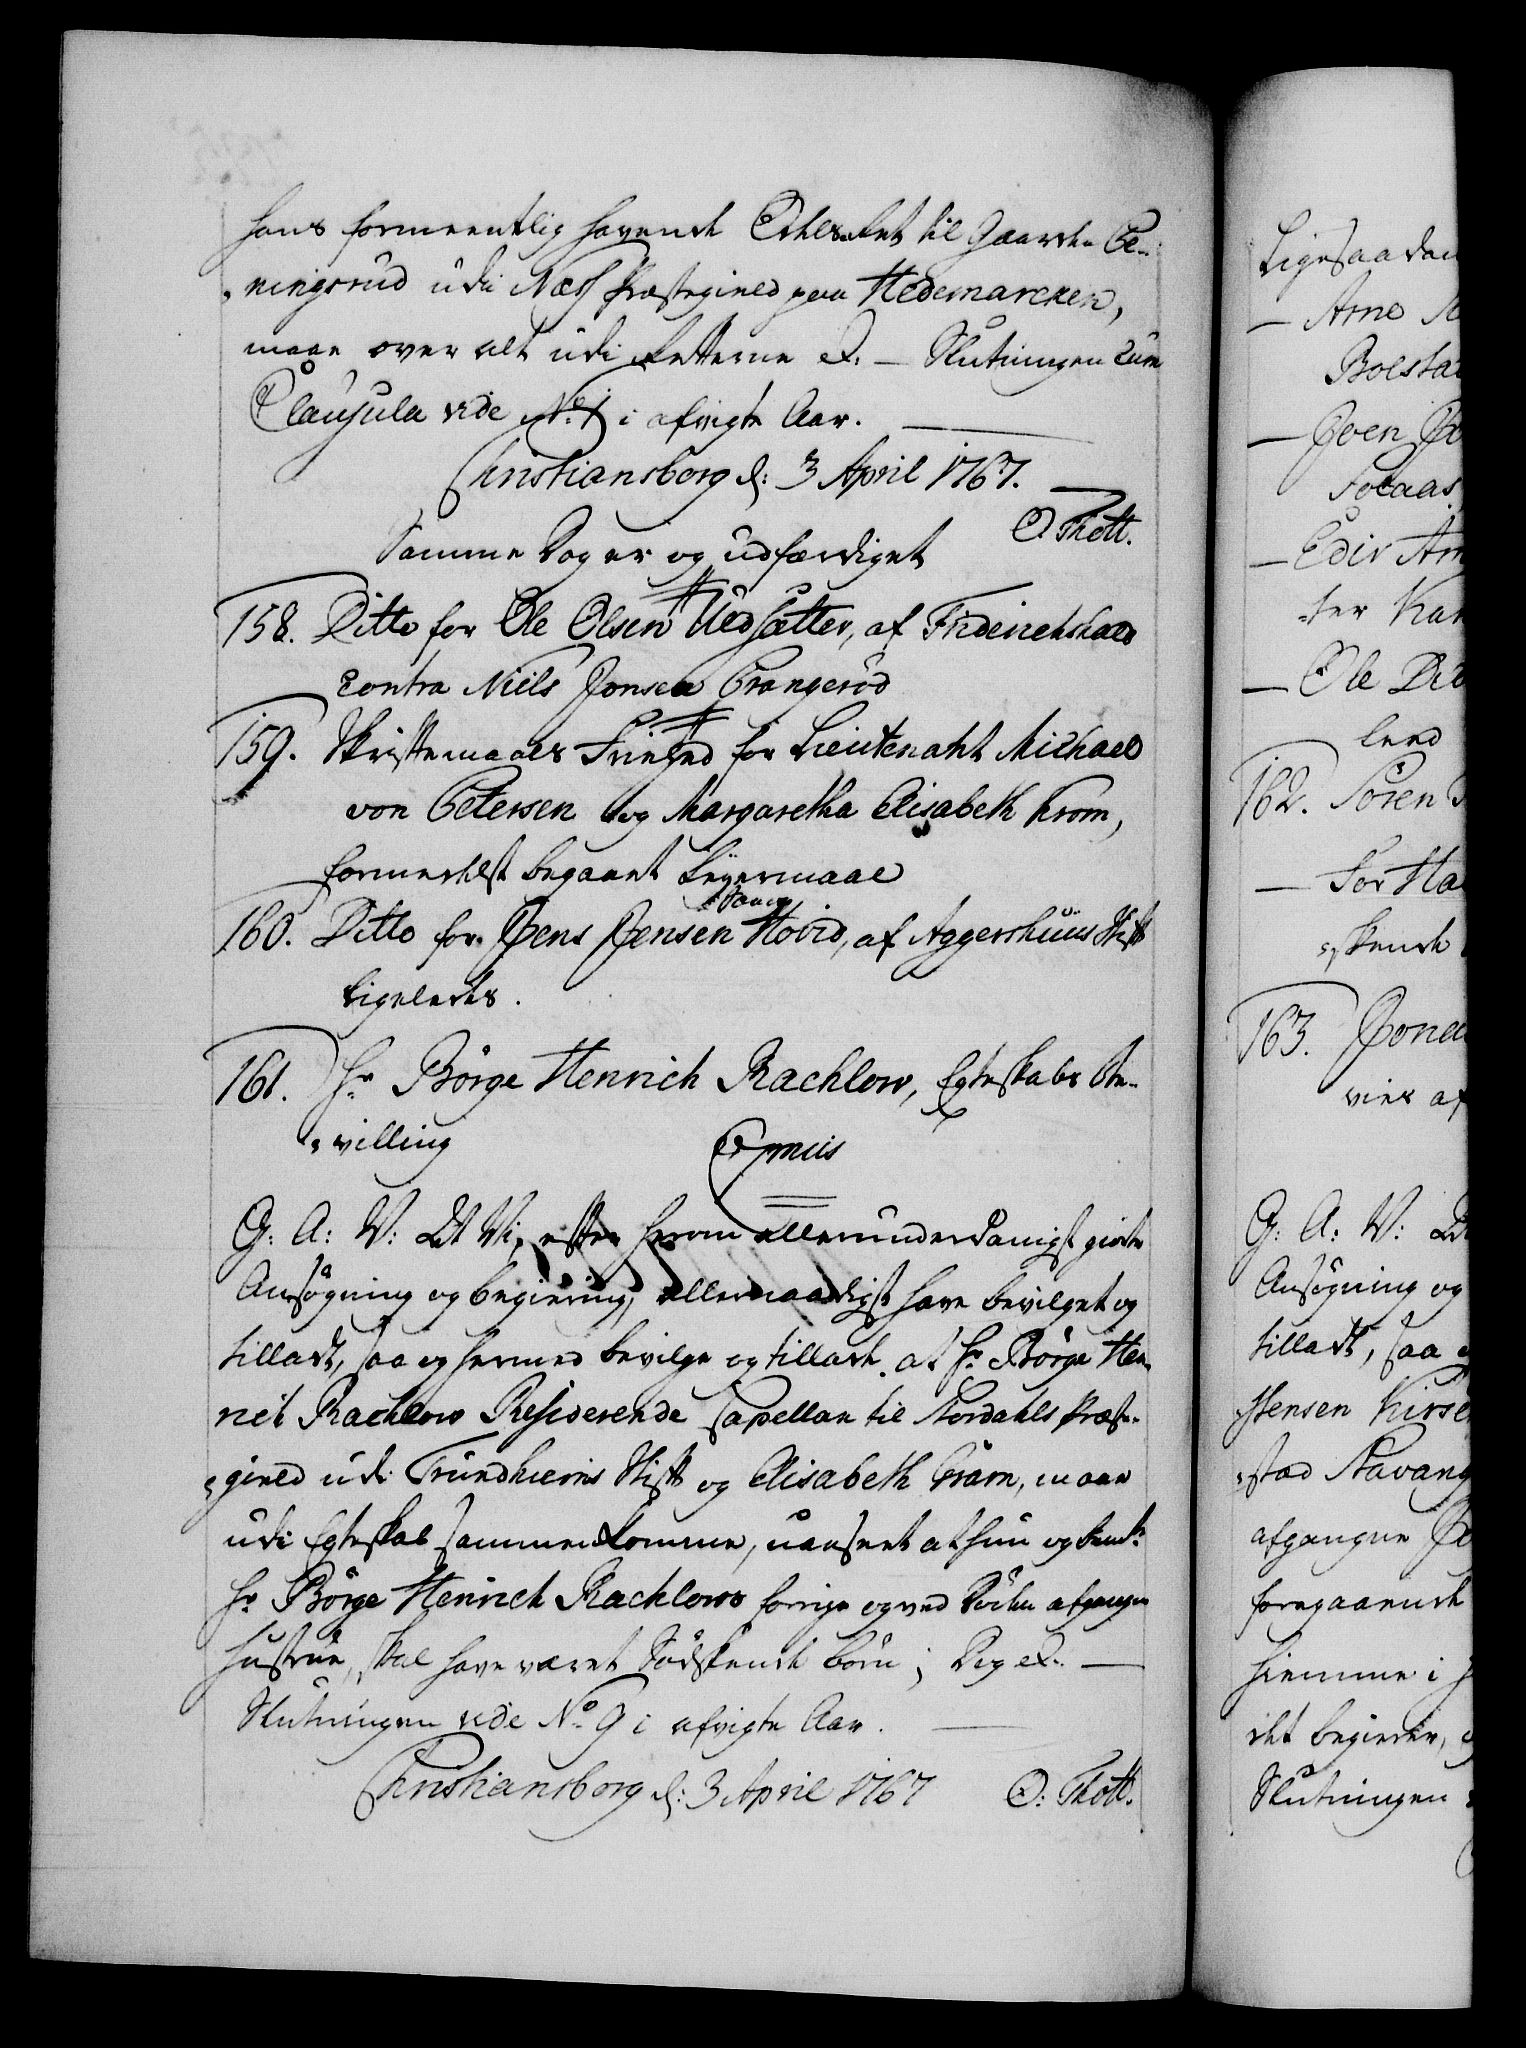 hans formeentlig havende Odels Ret til Gaarden
ningsrud udi Næss Præstegield paa Hedemarcken,
maae over alt udi Retterne &. — Slutningen cum
Clausula vide No. 1 i afvigte Aar. —
Christiansborg d: 3 April 1767. —
O. Thott.
Samme Dag er og udfærdiget
158. Ditto for Ole Olsen af Friderichshald
contra Niels Jonsen
159. Skriftemaals Friehed for Lieutenant Michael
von Petersen og Margaretha Elisabeth Krom,
formedelst begaaet Leyermaal
160. Ditto for Jens Jensen Hovid, af Aggershuus Stift
ligeledes.
161. Hr. Börge Henrich Rachlow, Egteskabs Be-
villing
G: A: V: At Vi, efter herom allerunderdanigst giorte
Ansøgning og begiering, allernaadigst have bevilget og
tilladt, saa og hermed bevilge og tillade, at Hr. Börge Hen-
rich Rachlow Residerende Capellan til Nordahls Præste-
gield udi Trundhiems Stift og Elisabeth Cram, maae
udi Egteskab sammenkomme, uanseet at hun og bemte
Hr. Börge Henrich Rachlows forrige og ved Døden afgangne
Hustrue, skal have været Södskende børn; Dog &. —
Slutningen vide No. 9 i afvigte Aar. —
Christiansborg d: 3 April 1767 O: Thott.
Ligesaadan
— Arne
— Joen
Solaas
— Ole
lend
162. Sören
— For
skende
163.
vies af
G: A: V:
Ansøgning og
tilladt, saa
Jensen
stad Stavang
afgangne
foregaaende
hiemme i
det begierer,
Slutningen